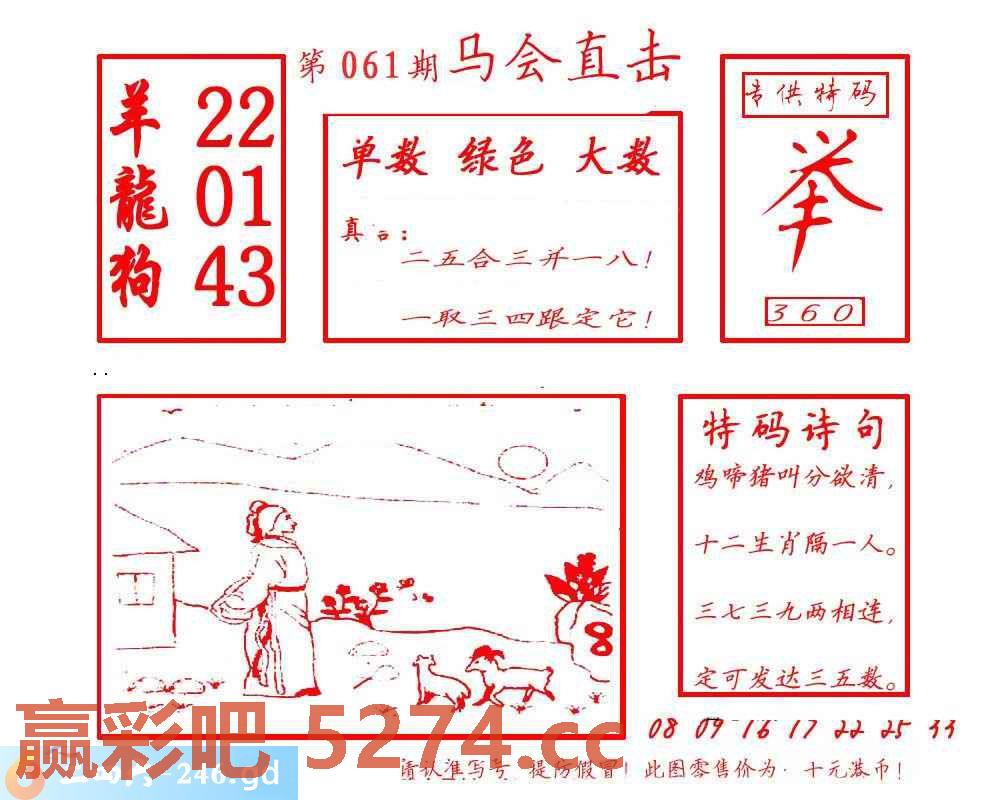 第061期 马会直击
羊 22
龍 01
狗 43
单数 绿色 大数
真言:
二五合三并一八!
一取三四跟定它!
专供特码
举
360
特码诗句
鸡啼猪叫分欲清,
十二生肖隔一人。
三七三九两相连,
定可发达三五数。
8
08 09 16 17 22 25 44
赢彩吧 5274.cc
-246.gd
请认准写号 提防假冒! 此图零售价为·十元港币!